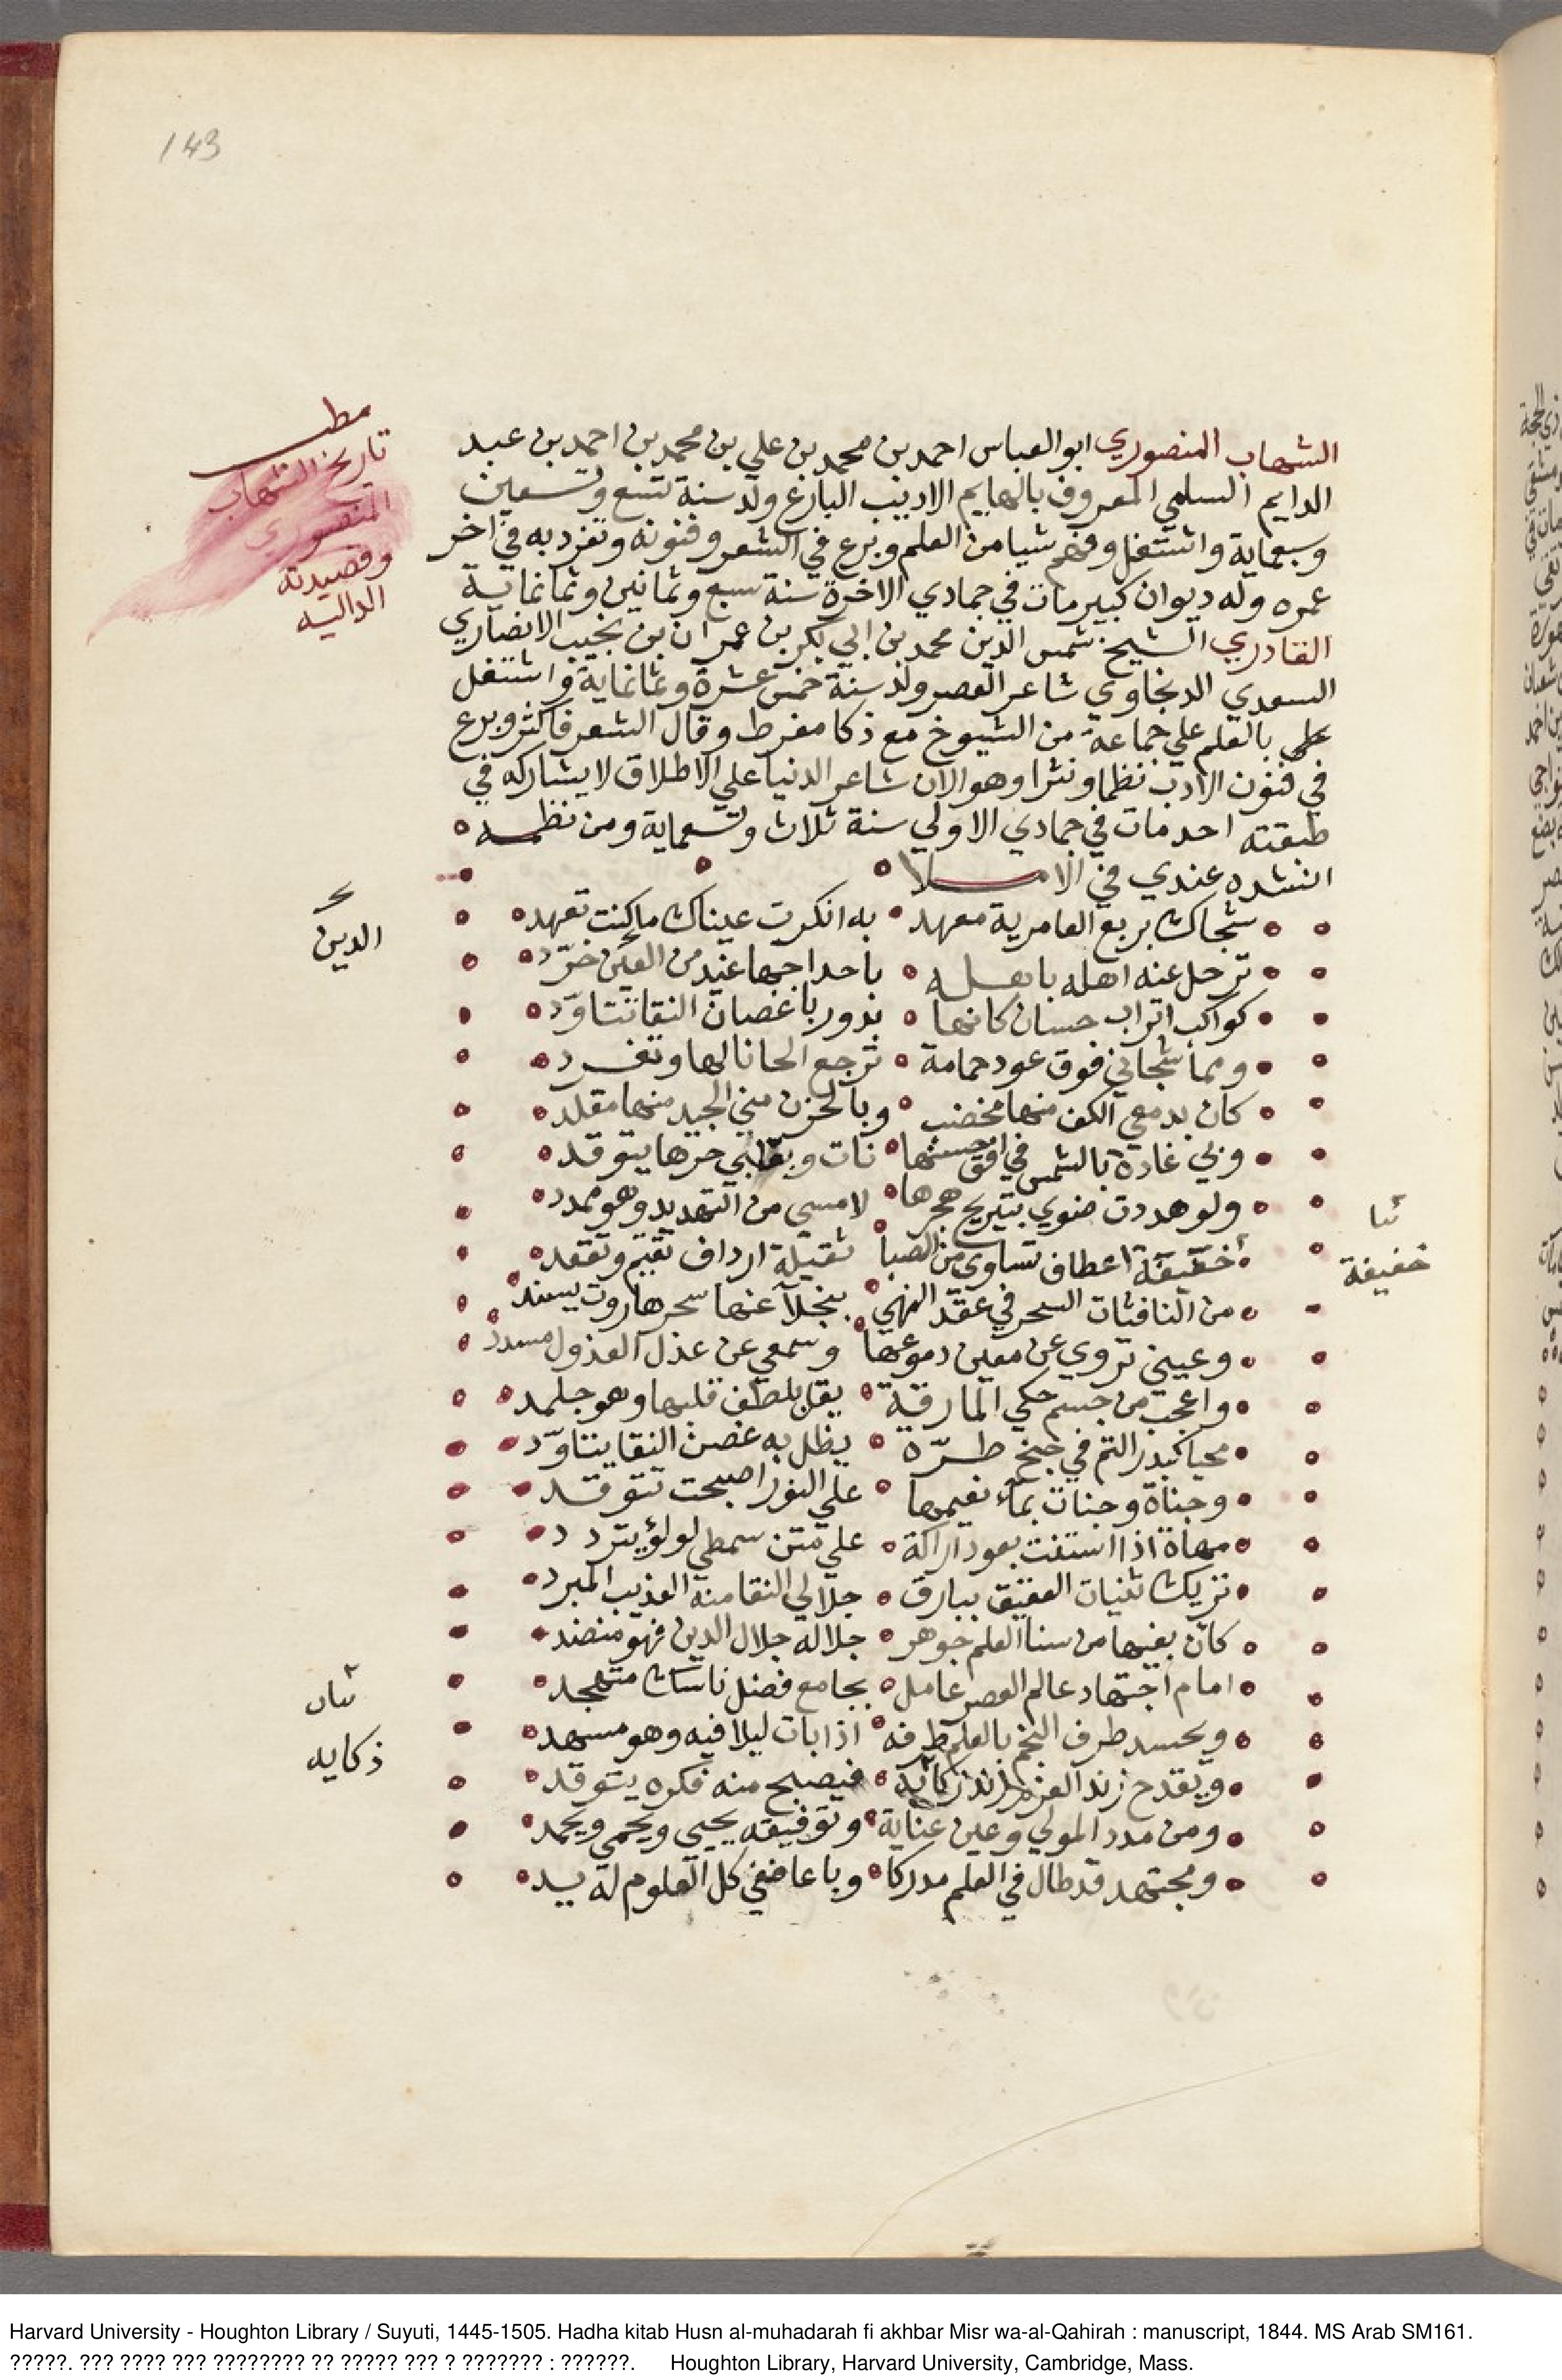 143
مطلب
تاريخ الشهاب
المنصوري
وقصيدته
الداليه
الشهاب المنصوري ابو العباس احمد بن محمد بن علي بن محمد بن احمد بن عبد
الدايم السلمي المعروف بالهايم الاديب البارع ولد سنة تسع وتسعين
وسبعماية واشتغل وفهم شيا من العلم وبرع في الشعر وفنونه وتفرد به في اخر
عمره وله ديوان كبير مات في جمادي الاخرة سنة سبع وثمانين وثمانماية
القادري الشيخ شمس الدين محمد بن ابي بكر بن عمر ان بن نجيب الانصاري
السعدي الدنجاوي شاعر العصر ولد سنة خمس عشرة وثمانماية واشتغل
بالعلم علي جماعة من الشيوخ مع ذكا مفرط وقال الشعر فاكثر وبرع
في فنون الادب نظما ونثرا وهو الان شاعر الدنيا علي الاطلاق لا يشاركه في
طبقته احد مات في جمادي الاولي سنة ثلاث وتسعماية ومن نظمه
انشده عندي في الاملا
شجاك بربع العامرية معهد به انكرت عيناك ما كنت تعهد
الدين
ترحل عنه اهله باهله باحداجها غيد من العين خرّد
كواكب اتراب حسان كانها بدور باغصان النقا تتاوّد
ومما شجاني فوق عود حمامة ترجع الحانا لها وتغرد
كان بدمعي الكف منها مخضب وبالحزن مني الجيد منها مقلد
وبي غادة بالشمس في افق حسنها نات وبقلبي حرها يتوقد
ولو هددت رضوي بتبريح هجرها لامسي من التهديد وهو ممدد
خفيفة اعطاف تساوي من الصبا ثقيلة ارداف تقيم وتقعد
خفيفة
من النافثات السحر في عقد النهي بنجلآ عنها سحر هاروت يسند
وعيني تروي عن معين دموعها وسمعي عن عذل العذول مسدد
واعجب من جسم حكي الما رقة يقل بلطف قلبها وهو جلمد
محيا كبدر التم في جنح طرّة يظل به غصن النقا يتاوّد
وجناة وجنات بمآء نعيمها علي النور اصبحت تتوقد
مهاة اذا استنت بعود اراكة علي متن سمطي لولؤ يتردد
تزيك ثنيات العقيق ببارق جلا لي النقا منه العذيب المبرد
كان بفيها من سنا العلم جوهر جلاله جلال الدين فهو منضد
امام اجتهاد عالم العصر عامل بجامع فضل ناسك متهجد
ويحسد طرف النجم بالعلم طرفه اذا بات ليلا فيه وهو مسهد
ويقدح زند العزم زند ذكائه فيصبح منه فكره يتوقد
ذكايه
ومن مدد المولي وعين عناية وتوفيقه يحيي ويحمي ويحمد
ومجتهد قد طال في العلم مدركا وباعا ففي كل العلوم له يد
Harvard University - Houghton Library / Suyuti, 1445-1505. Hadha kitab Husn al-muhadarah fi akhbar Misr wa-al-Qahirah : manuscript, 1844. MS Arab SM161.
?????. ??? ???? ??? ???????? ?? ????? ??? ? ??????? : ??????. Houghton Library, Harvard University, Cambridge, Mass.